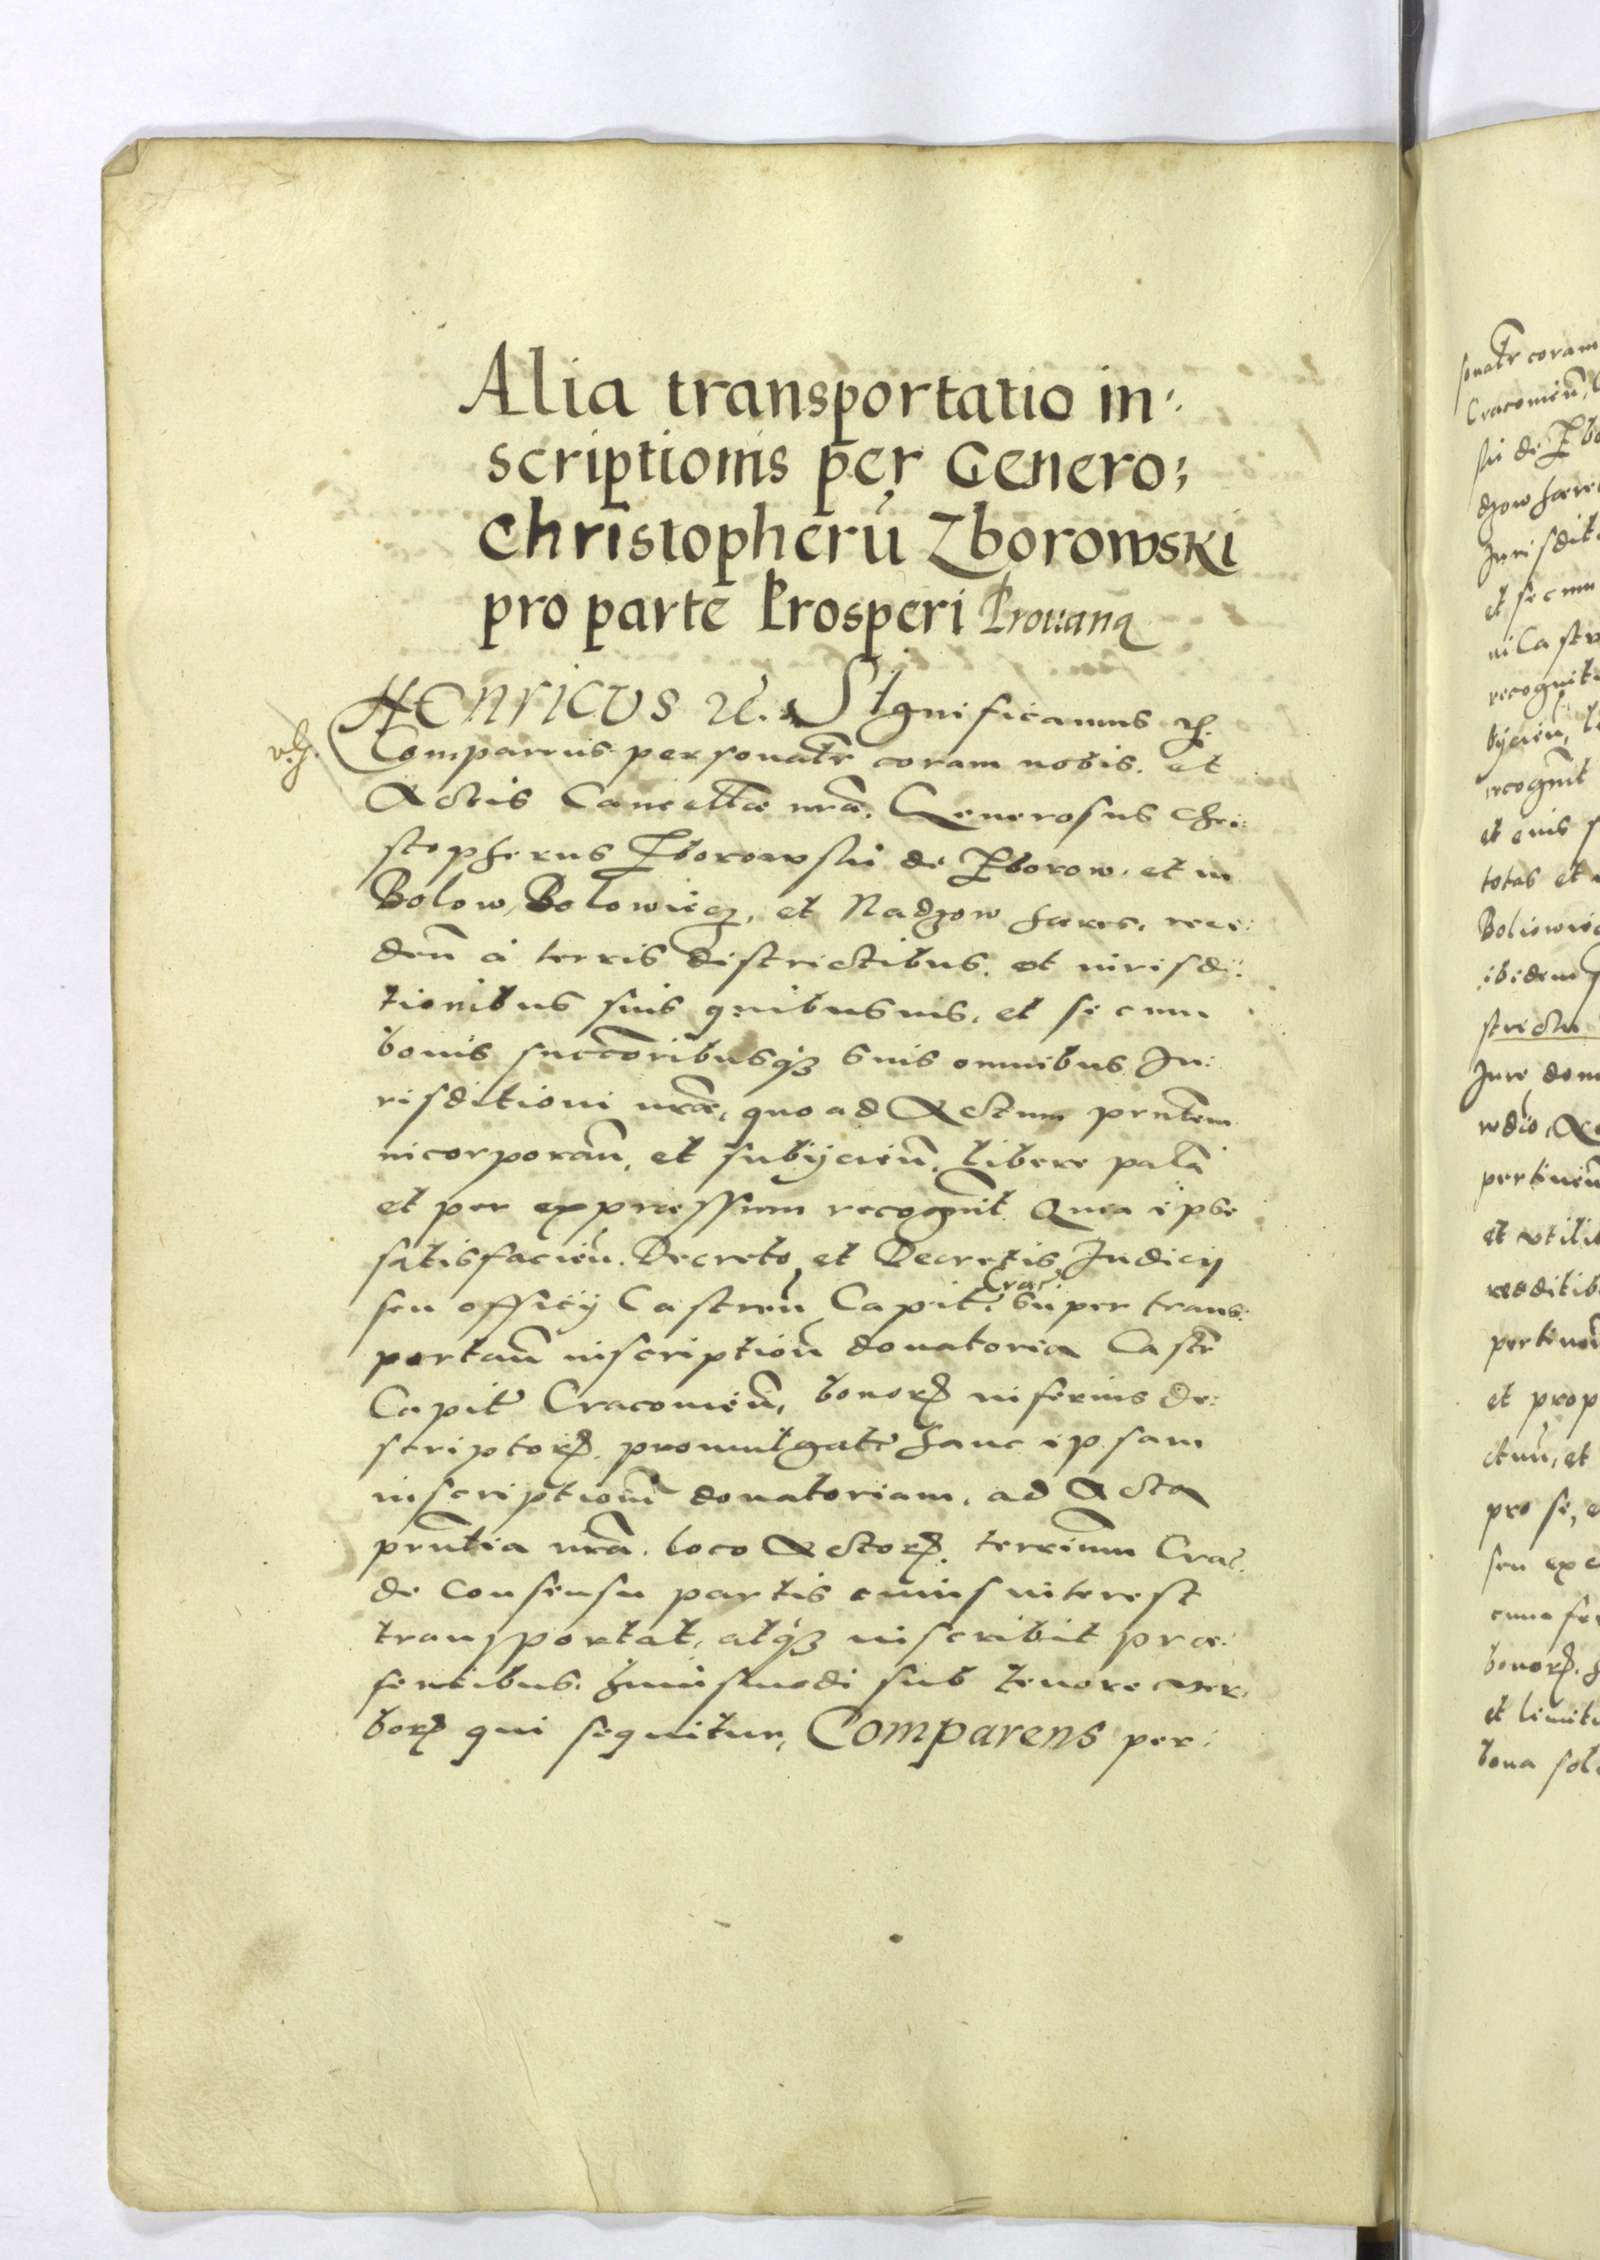 Alia transportatio in:
scriptionis per Genero:
Christopherũ Zborowski
pro parte Prosperi Prouana
Henricus etc. Significamus etc.
Comparuis personalr coram nobis. et
Actis Cancellæ nrã. Generosus Chri:
stopherus Zborowski de Zborow. et in
Bolow, Bolowicz, et Nadzow hæres, rece:
deñ à terris districtibus. et iurisdi:
tionibus suis quibusuis, et se cum
bonis succoribusq suis omnibus Iu:
risditioni nræ, quo ad Actum pntem
incorporañ, et subijcieñ. libere palã
et per expressum recognit. Quia ipse
satisfacieñ. Decreto et Decretis Iudicij
seu officij Castreñ Capit. Crac: super trans:
portañ inscriptioñ donatoria Castr
Capit Cracouieñ, bonorꝝ inferius de:
scriptorꝝ. promulgatr hanc ipsam
inscriptionẽ donatoriam, ad Acta
pñtia nrã. loco Actorꝝ. terrium Crac.
de consensu partis cuius interest
transportat, atqꝫ inscribit præ:
sentibus. huiusmodi sub tenore ver:
borꝝ qui sequitur, Comparens per:
sonalr coram
Cracouieñ,
ski de Zbo
dzow hære
Iurisdit
et se cum
ni Castr
recognit
bijcieñ, li
recognit
et eius s
totas et
Boliowic
ibidem
strictu
Iure dom
pertineñ
et vtilit
redditib
pertineñ
et prop
pro se, e
seu exc
cum
bonorꝝ.
et limit
bona sol